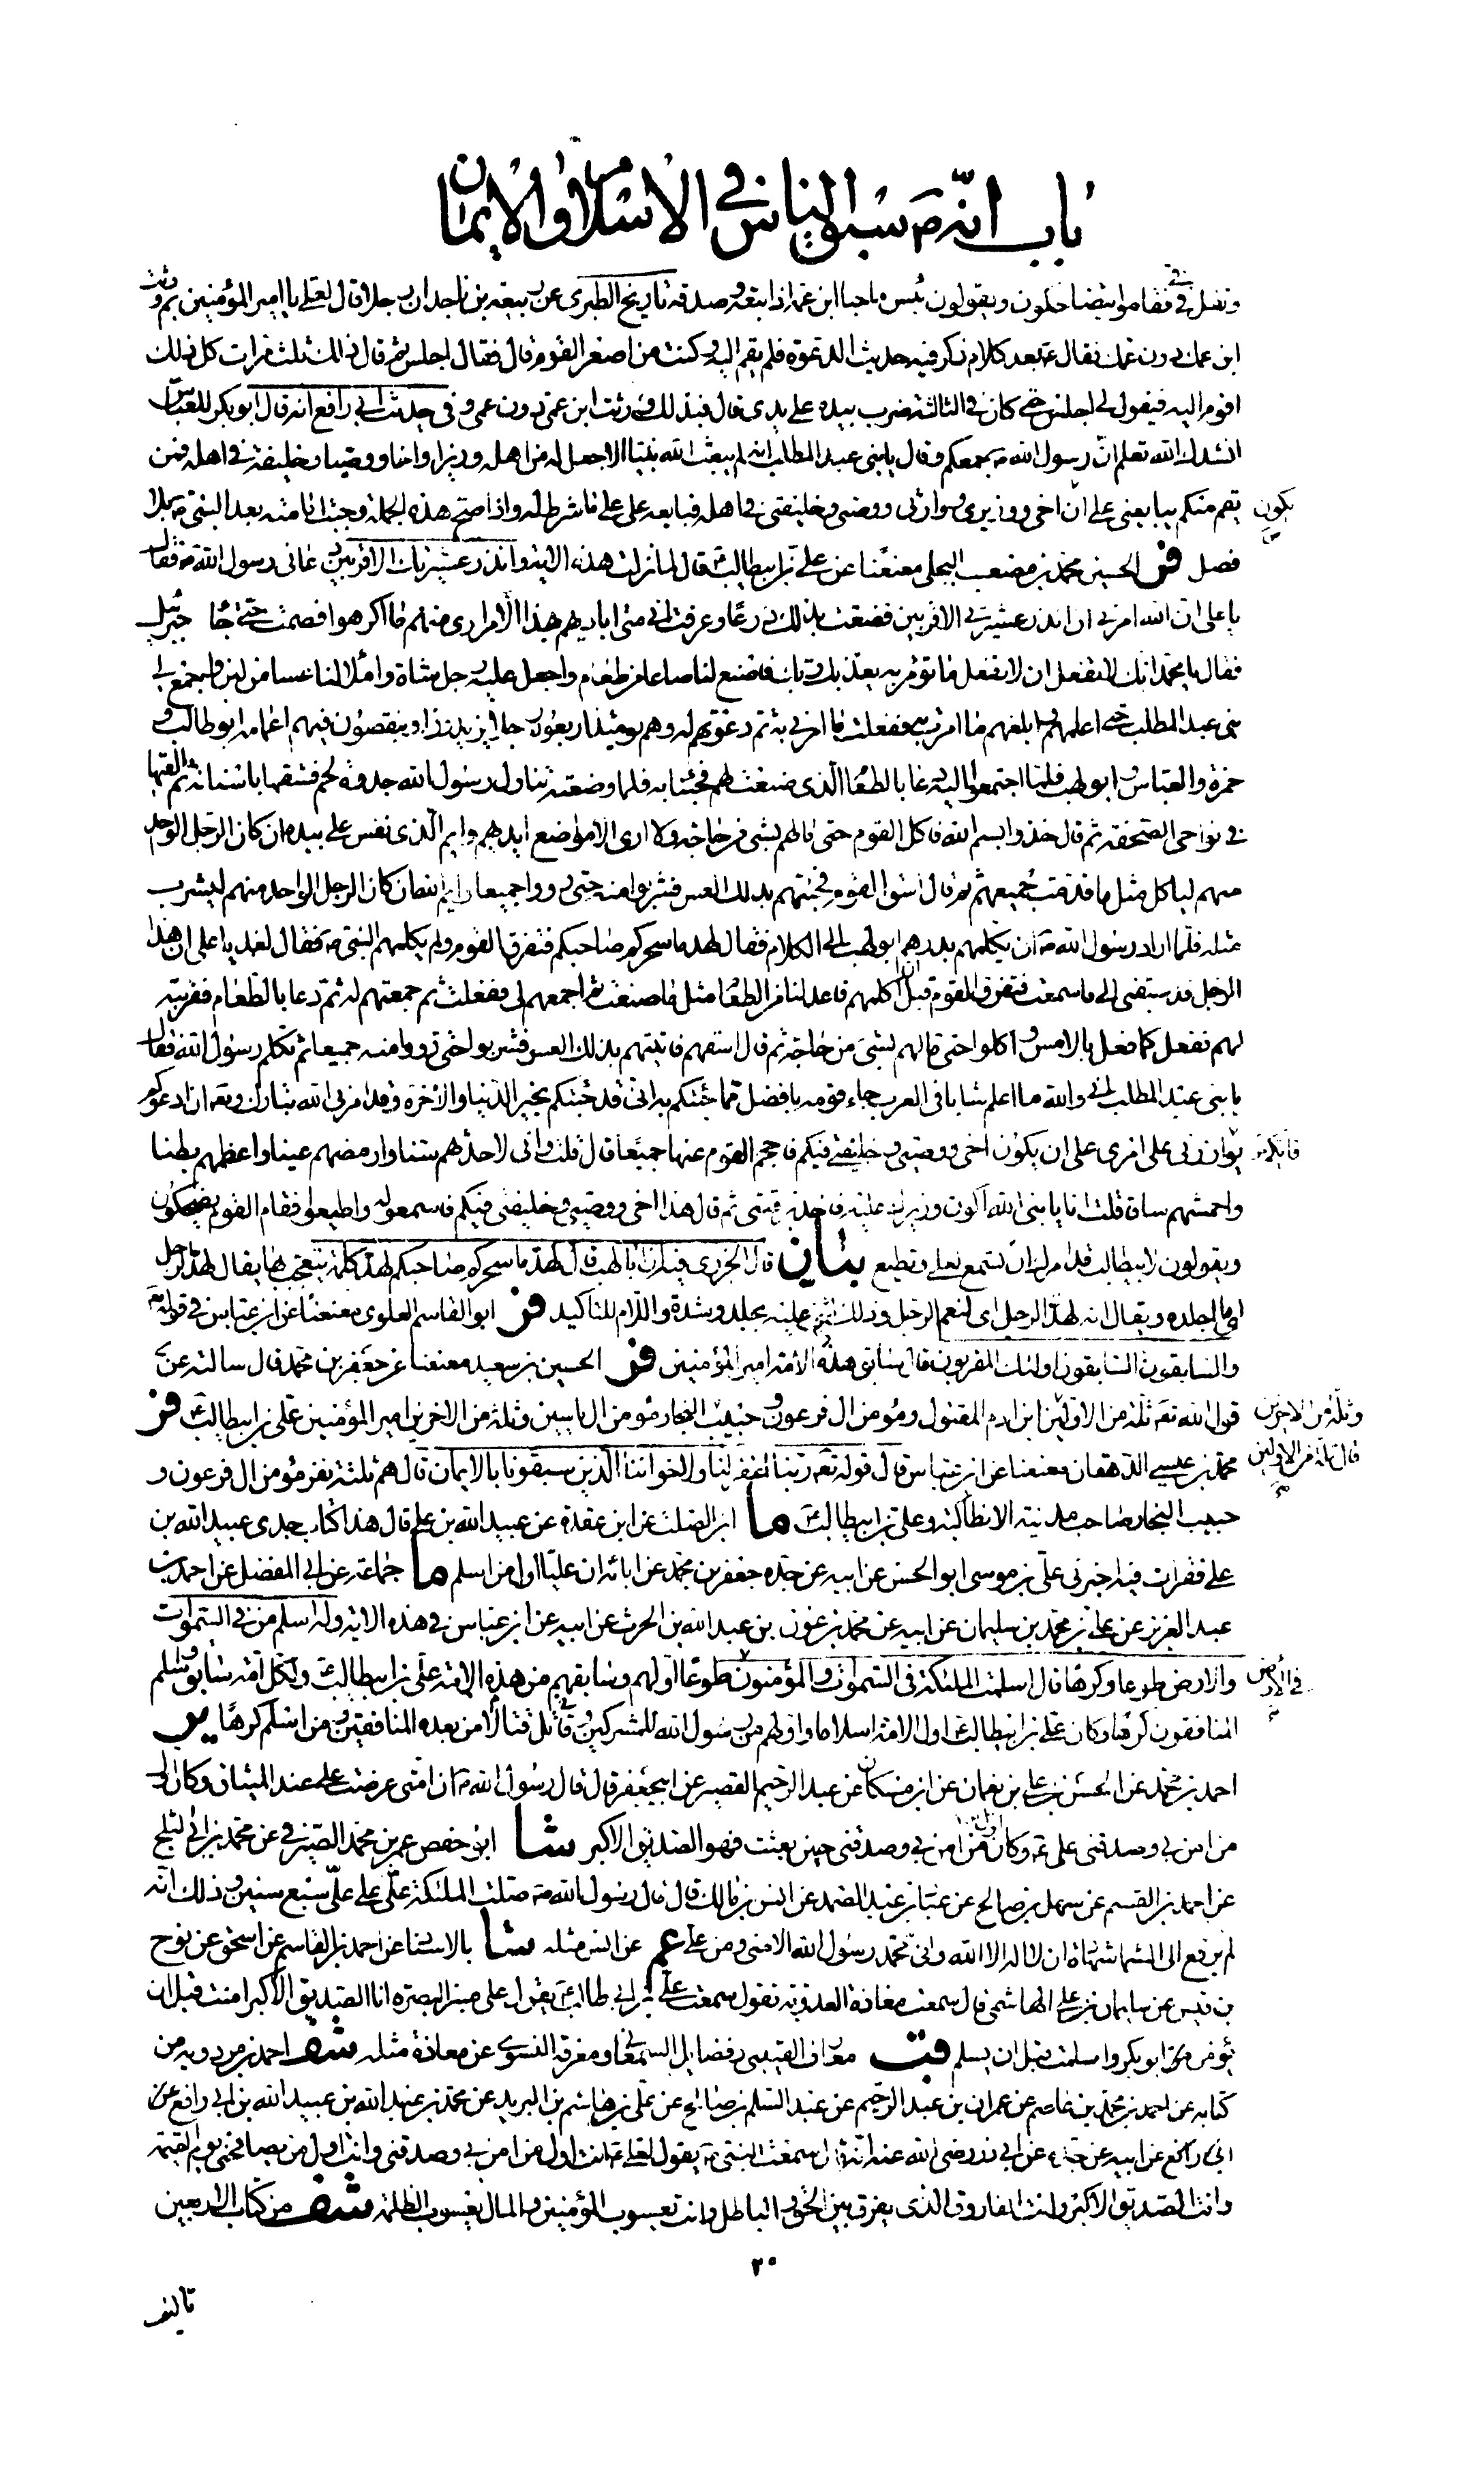 باب انه ع سبق الناس في الاسلام والايمان
وتفل في فيه فقاموا يتضاحكون ويقولون بئس ما حبا ابن عمه اذا تبعه وصدقه تاريخ الطبري عن ربيعة بن ناجد ان رجلا قال لعلي يا امير المؤمنين بم ورثت
ابن عمك دون عمك فقال ع بعد كلام ذكر فيه حديث الدعوة فلم يقم اليه وكنت من اصغر القوم قال فقال اجلس ثم قال ذلك ثلث مرات كل ذلك
اقوم اليه فيقول لي اجلس حتى كان في الثالثة ضرب بيده على يدي قال فبذلك ورثت ابن عمي دون عمي وفي حديث ابي رافع انه قال ابو بكر للعباس
انشدك الله تعلم ان رسول الله ص جمعكم وقال يا بني عبد المطلب انه لم يبعث الله نبيا الا جعل له من اهله وزيرا واخا ووصيا وخليفة في اهله فمن
يقم منكم يبايعني على ان يكون اخي ووزيري ووارثي ووصيي وخليفتي في اهلي فبايعه علي على ما شرط له واذا صح هذه الجملة وجبت امامته بعد النبي ص بلا
فصل فر الحسين بن محمد بن مصعب البجلي معنعنا عن علي بن ابيطالب ع قال لما نزلت هذه الاية وانذر عشيرتك الاقربين دعاني رسول الله ص فقال
يا علي ان الله امرني ان انذر عشيرتي الاقربين فضقت بذلك ذرعا وعرفت اني متى اباديهم بهذا الامر ارى منهم ما اكره فصمت حتى جاء جبرئيل
فقال يا محمد انك ان لا تفعل ما تؤمر به يعذبك ربك فاصنع لنا صاعا من طعام واجعل عليه رجل شاة واملا لنا عسا من لبن واجمع لي
بني عبد المطلب حتى اعلمهم وابلغهم ما امرت به ففعلت ما امرني به ثم دعوتهم له وهم يومئذ اربعون رجلا يزيدون او ينقصون فيهم اعمامه ابو طالب و
حمزة والعباس وابو لهب فلما اجتمعوا اليه دعا بالطعام الذي صنعت لهم فجئنا به فلما وضعته تناول رسول الله جذوة لحم فشقها باسنانه ثم القيها
في نواحي الصحفة ثم قال خذوا بسم الله فاكل القوم حتى ما لهم بشيء من حاجة ولا ارى الا مواضع ايديهم وايم الذي نفس علي بيده ان كان الرجل الواحد
منهم لياكل مثل ما قدمت لجميعهم ثم قال اسق القوم فجئتهم بذلك العس فشربوا منه حتى رووا جميعا وايم الله ان كان الرجل الواحد منهم ليشرب
مثله فلما اراد رسول الله ص ان يكلمهم بدرهم ابو لهب الى الكلام فقال لهد ما سحركم صاحبكم فتفرق القوم ولم يكلمهم النبي ص فقال لغد يا علي ان هذا
الرجل قد سبقني الى ما سمعت فتفرق القوم قبل ان اكلمهم فاعد لنا من الطعام مثل ما صنعت ثم اجمعهم لي ففعلت ثم جمعتهم له ثم دعا بالطعام فقربته
لهم ففعل كما فعل بالامس واكلوا حتى ما لهم بشيء من حاجة ثم قال اسقهم فاتيتهم بذلك العس فشربوا حتى رووا منه جميعا ثم تكلم رسول الله فقال
يا بني عبد المطلب اني والله ما اعلم شابا في العرب جاء قومه بافضل مما جئتكم به اني قد جئتكم بخير الدنيا والاخرة وقد امرني الله تبارك وتعه ان ادعوكم
فايكم يوازرني على امري على ان يكون اخي ووصيي وخليفتي فيكم فاحجم القوم عنها جميعا قال قلت واني لاحدثهم سنا وارمصهم عينا واعظمهم بطنا
واحمشهم ساقا قلت انا يا نبي الله اكون وزيرك عليه فاخذ برقبتي ثم قال هذا اخي ووصيي وخليفتي فيكم فاسمعوا له واطيعوا فقام القوم يضحكون
ويقولون لابيطالب قد امرك ان تسمع لعلي وتطيع بيان قال الجزري فيه ان ابا لهب قال لهد ما سحركم صاحبكم لهد كلمة يتعجب بها يقال لهد الرجل
اي ما اجلده ويقال انه لهد الرجل اي لنعم الرجل وذلك اذا اثني عليه بجلد وشدة واللام للتاكيد فر ابو القاسم العلوي معنعنا عن ابن عباس في قوله تع
والسابقون السابقون اولئك المقربون قال سابق هذه الامة امير المؤمنين فر الحسين بن سعيد معنعنا عن جعفر بن محمد قال سالته عن
قول الله تعه ثلة من الاولين وثلة من الاخرين قال ثلة من الاولين ابن ادم المقتول ومؤمن ال فرعون وحبيب النجار مؤمن ال ياسين وثلة من الاخرين امير المؤمنين علي بن ابيطالب ع فر
محمد بن عيسى الدهقان معنعنا عن ابن عباس قال قوله تعه ربنا اغفر لنا ولاخواننا الذين سبقونا بالايمان قال هم ثلثة نفر مؤمن ال فرعون و
حبيب النجار صاحب مدينة الانطاكية وعلي بن ابيطالب ع ما ابن الصلت عن ابن عقدة عن عبيد الله بن علي قال هذا كتاب جدي عبيد الله بن
علي فقرات فيه اخبرني علي بن موسى ابو الحسن عن ابيه عن جده جعفر بن محمد عن ابائه ان عليا اول من اسلم ما جماعة عن ابي المفضل عن احمد بن
عبد العزيز عن علي بن محمد بن سليمان عن ابيه عن محمد بن عون بن عبد الله بن الحرث عن ابيه عن ابن عباس في هذه الاية وله اسلم من في السموات
والارض طوعا وكرها قال اسلمت الملئكة في السموات والمؤمنون في الارض طوعا اولهم وسابقهم من هذه الامة علي بن ابيطالب ع ولكل امة سابق واسلم
المنافقون كرها وكان علي بن ابيطالب ع اول الامة اسلاما واولهم من رسول الله للمشركين قتالا وقاتل من بعده المنافقين ومن اسلم كرها ير
احمد بن محمد عن الحسن بن علي بن نعمان عن ابن مسكان عن عبد الرحيم القصير عن ابيجعفر قال قال رسول الله ص ان امتي عرضت علي عند الميثاق وكان اول
من امن بي وصدقني علي ع وكان اول من امن بي وصدقني حين بعثت فهو الصديق الاكبر شا ابو حفص عمر بن محمد الصيرفي عن محمد بن ابي الثلج
عن احمد بن القسم عن سهل بن صالح عن عباد بن عبد الصمد عن انس بن مالك قال قال رسول الله ص صلت الملئكة علي وعلى علي سبع سنين وذلك انه
لم يرفع الى السماء شهادة ان لا اله الا الله واني محمد رسول الله الا مني ومن علي عم عن انس مثله شا بالاسناد عن احمد بن القاسم عن اسحق عن نوح
بن قيس عن سليمان بن علي الهاشمي قال سمعت معاذة العدوية تقول سمعت علي بن ابي طالب ع يقول على منبر البصرة انا الصديق الاكبر امنت قبل ان
يؤمن ابو بكر واسلمت قبل ان يسلم قب معارف القتيبي وفضايل السمعاني ومعرفة النسوي عن معاذة مثله شف احمد بن مردويه من
كتابه عن احمد بن محمد بن عاصم عن عمران بن عبد الرحيم عن عبد السلم بن صالح عن علي بن هاشم بن البريد عن محمد بن عبد الله بن عبيد الله بن ابي رافع عن
ابي رافع عن ابيه عن جده عن ابي ذر رضي الله عنه انه قال سمعت النبي ص يقول لعلي ع انت اول من امن بي وصدقني وانت اول من يصافحني يوم القيمة
وانت الصديق الاكبر وانت الفاروق الذي يفرق بين الحق والباطل وانت يعسوب المؤمنين والمال يعسوب الظلمة شف من كتاب الاربعين
٢٠
تاليف